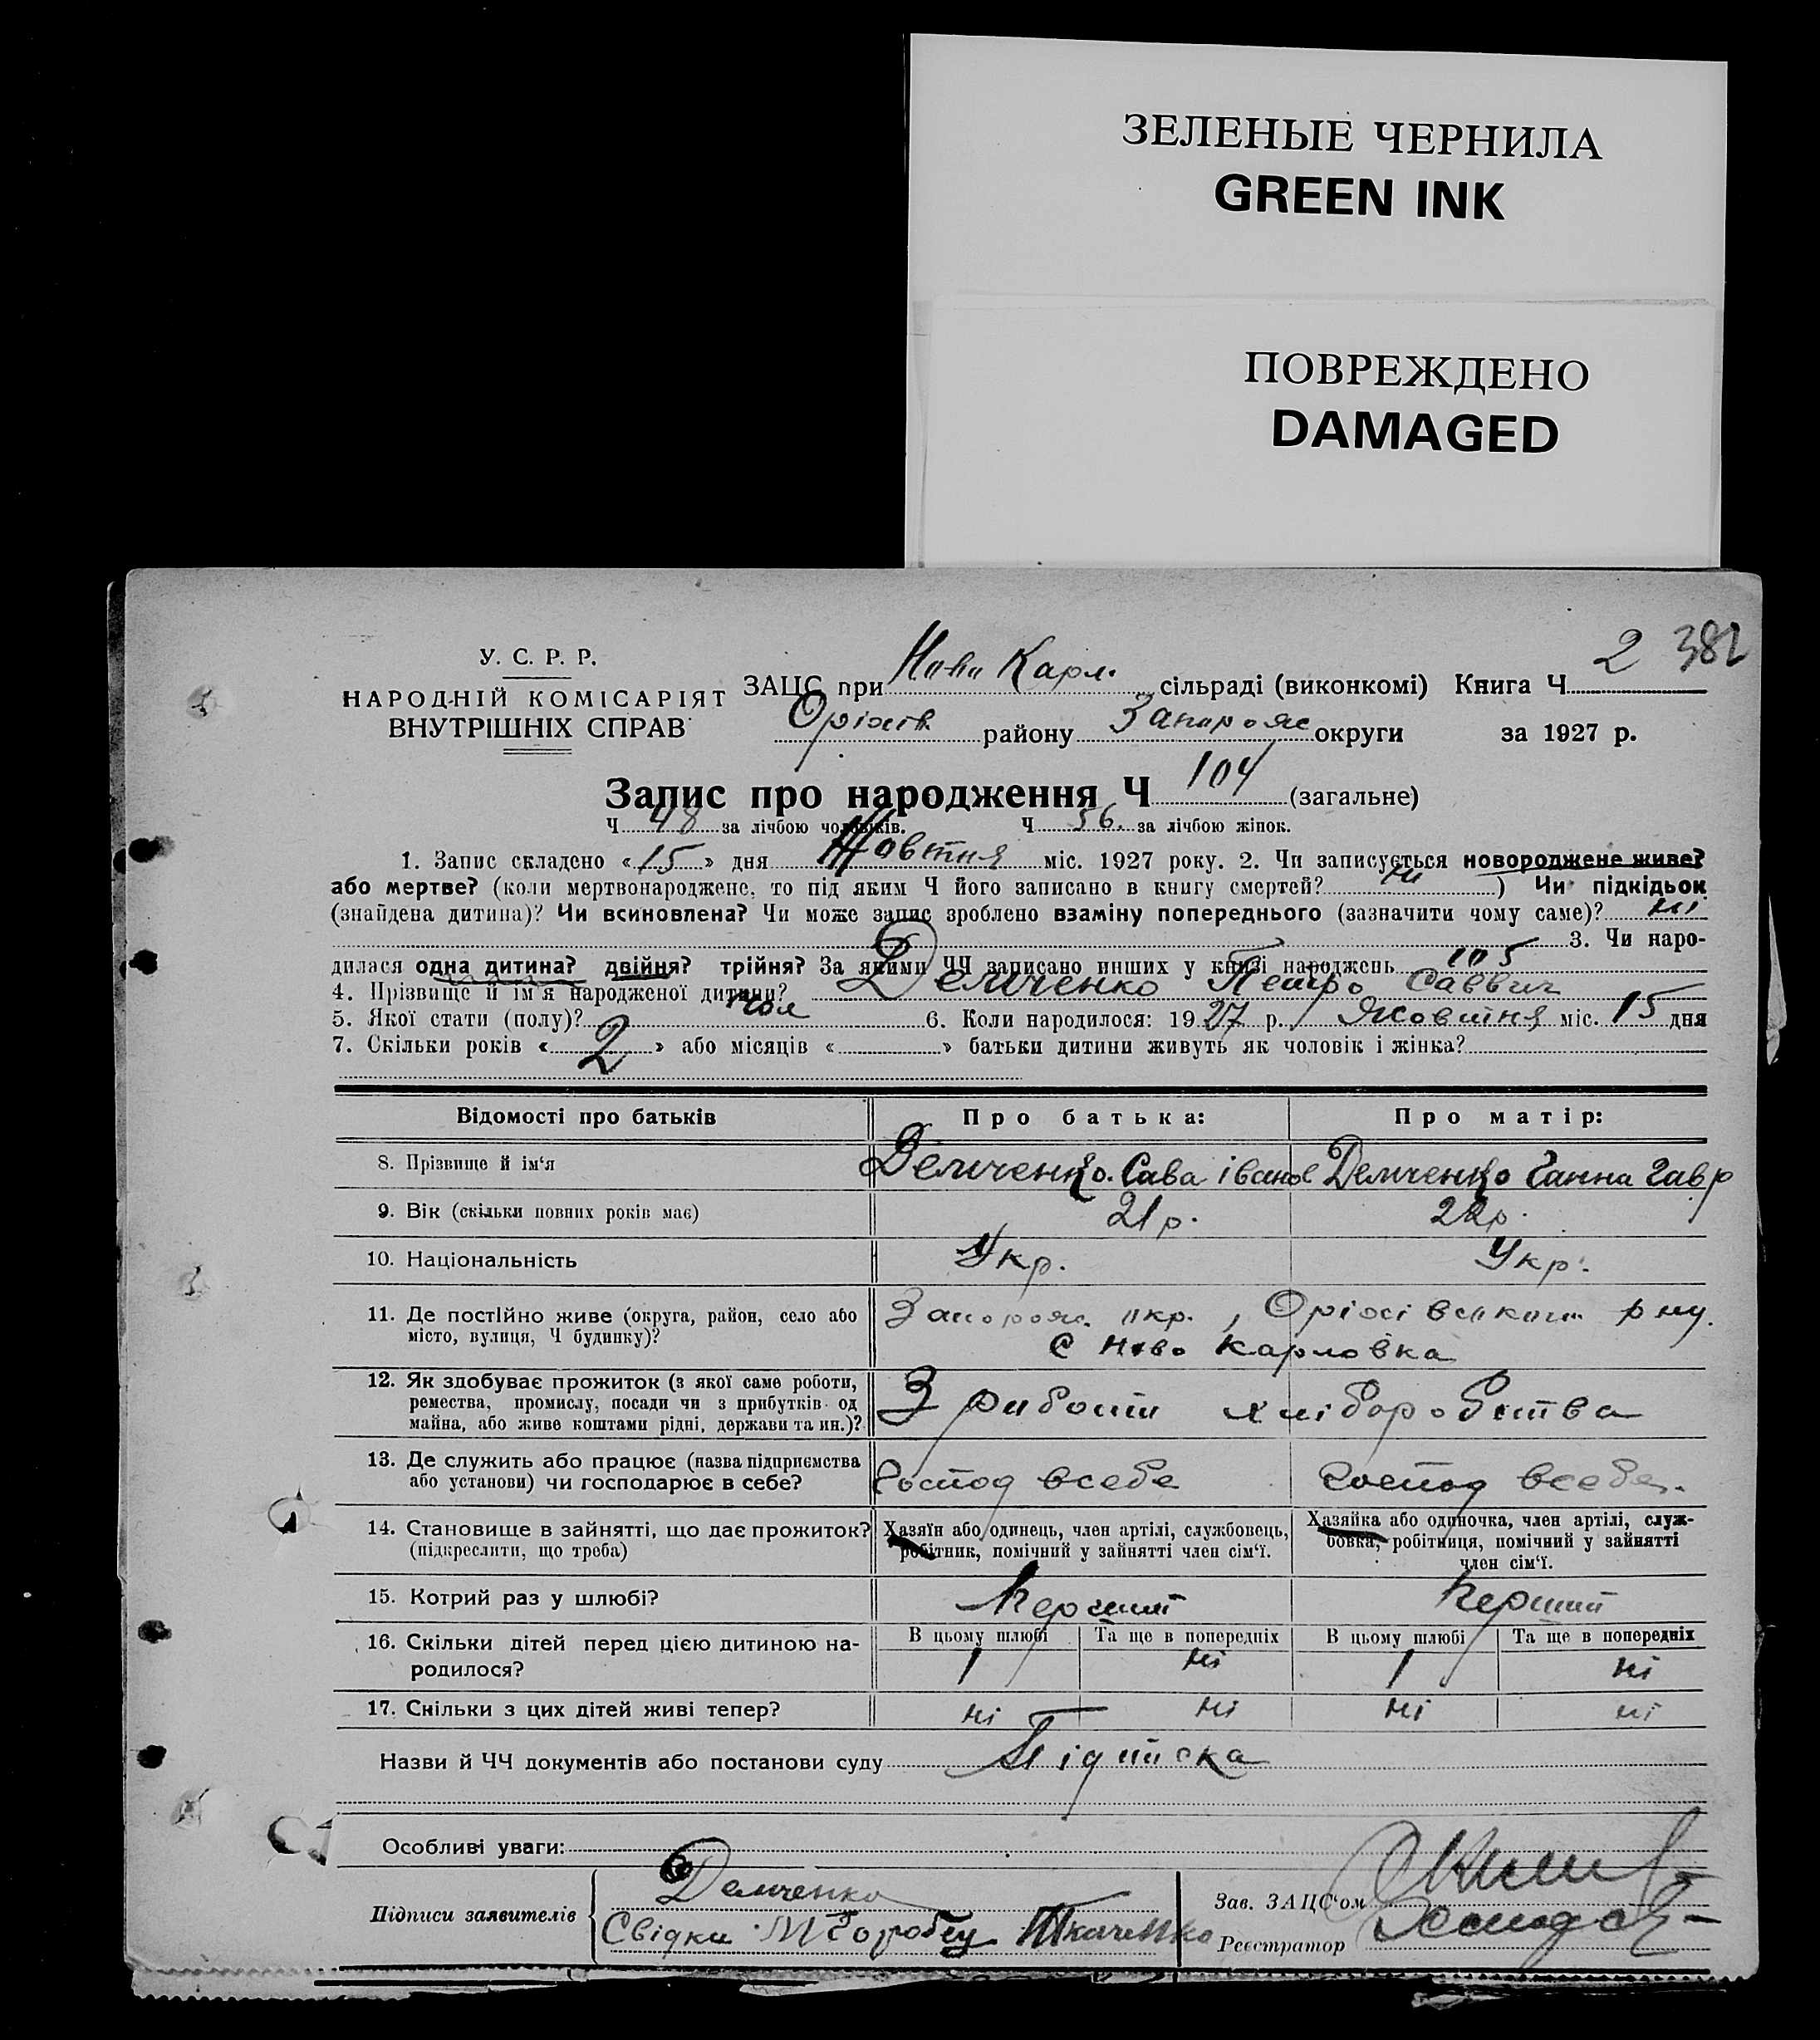 ЗЕЛЕНЫЕ ЧЕРНИЛА
GREEN INK
ПОВРЕЖДЕНО
DAMAGED
2 382
У. С. Р. Р.
НАРОДНІЙ КОМІСАРІЯТ
ВНУТРІШНІХ СПРАВ
ЗАЦС при Ново Карл. сільраді (виконкомі) Книга Ч
Оріхів району Запорож округи за 1927 р.
Запис про народження Ч 104 (загальне)
Ч 48 за лічбою чоловіків. Ч 56. за лічбою жінок.
1. Запис складено «15» дня Жовтня міс. 1927 року. 2. Чи записується новороджене живе?
або мертве? (коли мертвонароджене, то під яким Ч його записано в книгу смертей? ні) Чи підкідьок
(знайдена дитина)? Чи всиновлена? Чи може запис зроблено взаміну попереднього (зазначити чому саме)? ні
3. Чи наро-
дилася одна дитина? двійня? трійня? За якими ЧЧ записано инших у книзі народжень 105
4. Прізвище й ім'я народженої дитини? Демченко Петро Саввич
5. Якої стати (полу)? чол 6. Коли народилося: 1927 р. Жовтня міс. 15 дня
7. Скільки років «2» або місяців «» батьки дитини живуть як чоловік і жінка?
Відомості про батьків Про батька: Про матір:
8. Прізвище й ім'я Демченко. Сава Іванов Демченко Ганна Гавр
9. Вік (скільки повних років має) 21 р. 22 р.
10. Національність Укр. Укр.
11. Де постійно живе (округа, район, село або Запорож. окр., Оріхівського р ну.
місто, вулиця, Ч будинку)? С Ново Карловка
12. Як здобуває прожиток (з якої саме роботи,
ремества, промислу, посади чи з прибутків од З работи хліборобства
майна, або живе коштами рідні, держави та ин.)?
13. Де служить або працює (назва підприємства
або установи) чи господарює в себе? Господ всебе Господ всебе.
14. Становище в зайнятті, що дає прожиток? Хазяїн або одинець, член артілі, службовець, Хазяйка або одиночка, член артілі, служ-
(підкреслити, що треба) робітник, помічний у зайнятті член сім'ї. бовка, робітниця, помічний у зайнятті
член сім'ї.
15. Котрий раз у шлюбі? Перший Перший
16. Скільки дітей перед цією дитиною на- В цьому шлюбі Та ще в попередніх В цьому шлюбі Та ще в попередніх
родилося? 1 ні 1 ні
17. Скільки з цих дітей живі тепер? ні ні ні ні
Назви й ЧЧ документів або постанови суду Підписка
Особливі уваги:
Підписи заявителів Демченко Зав. ЗАЦС'ом
Свідки Ткаченко Реєстратор